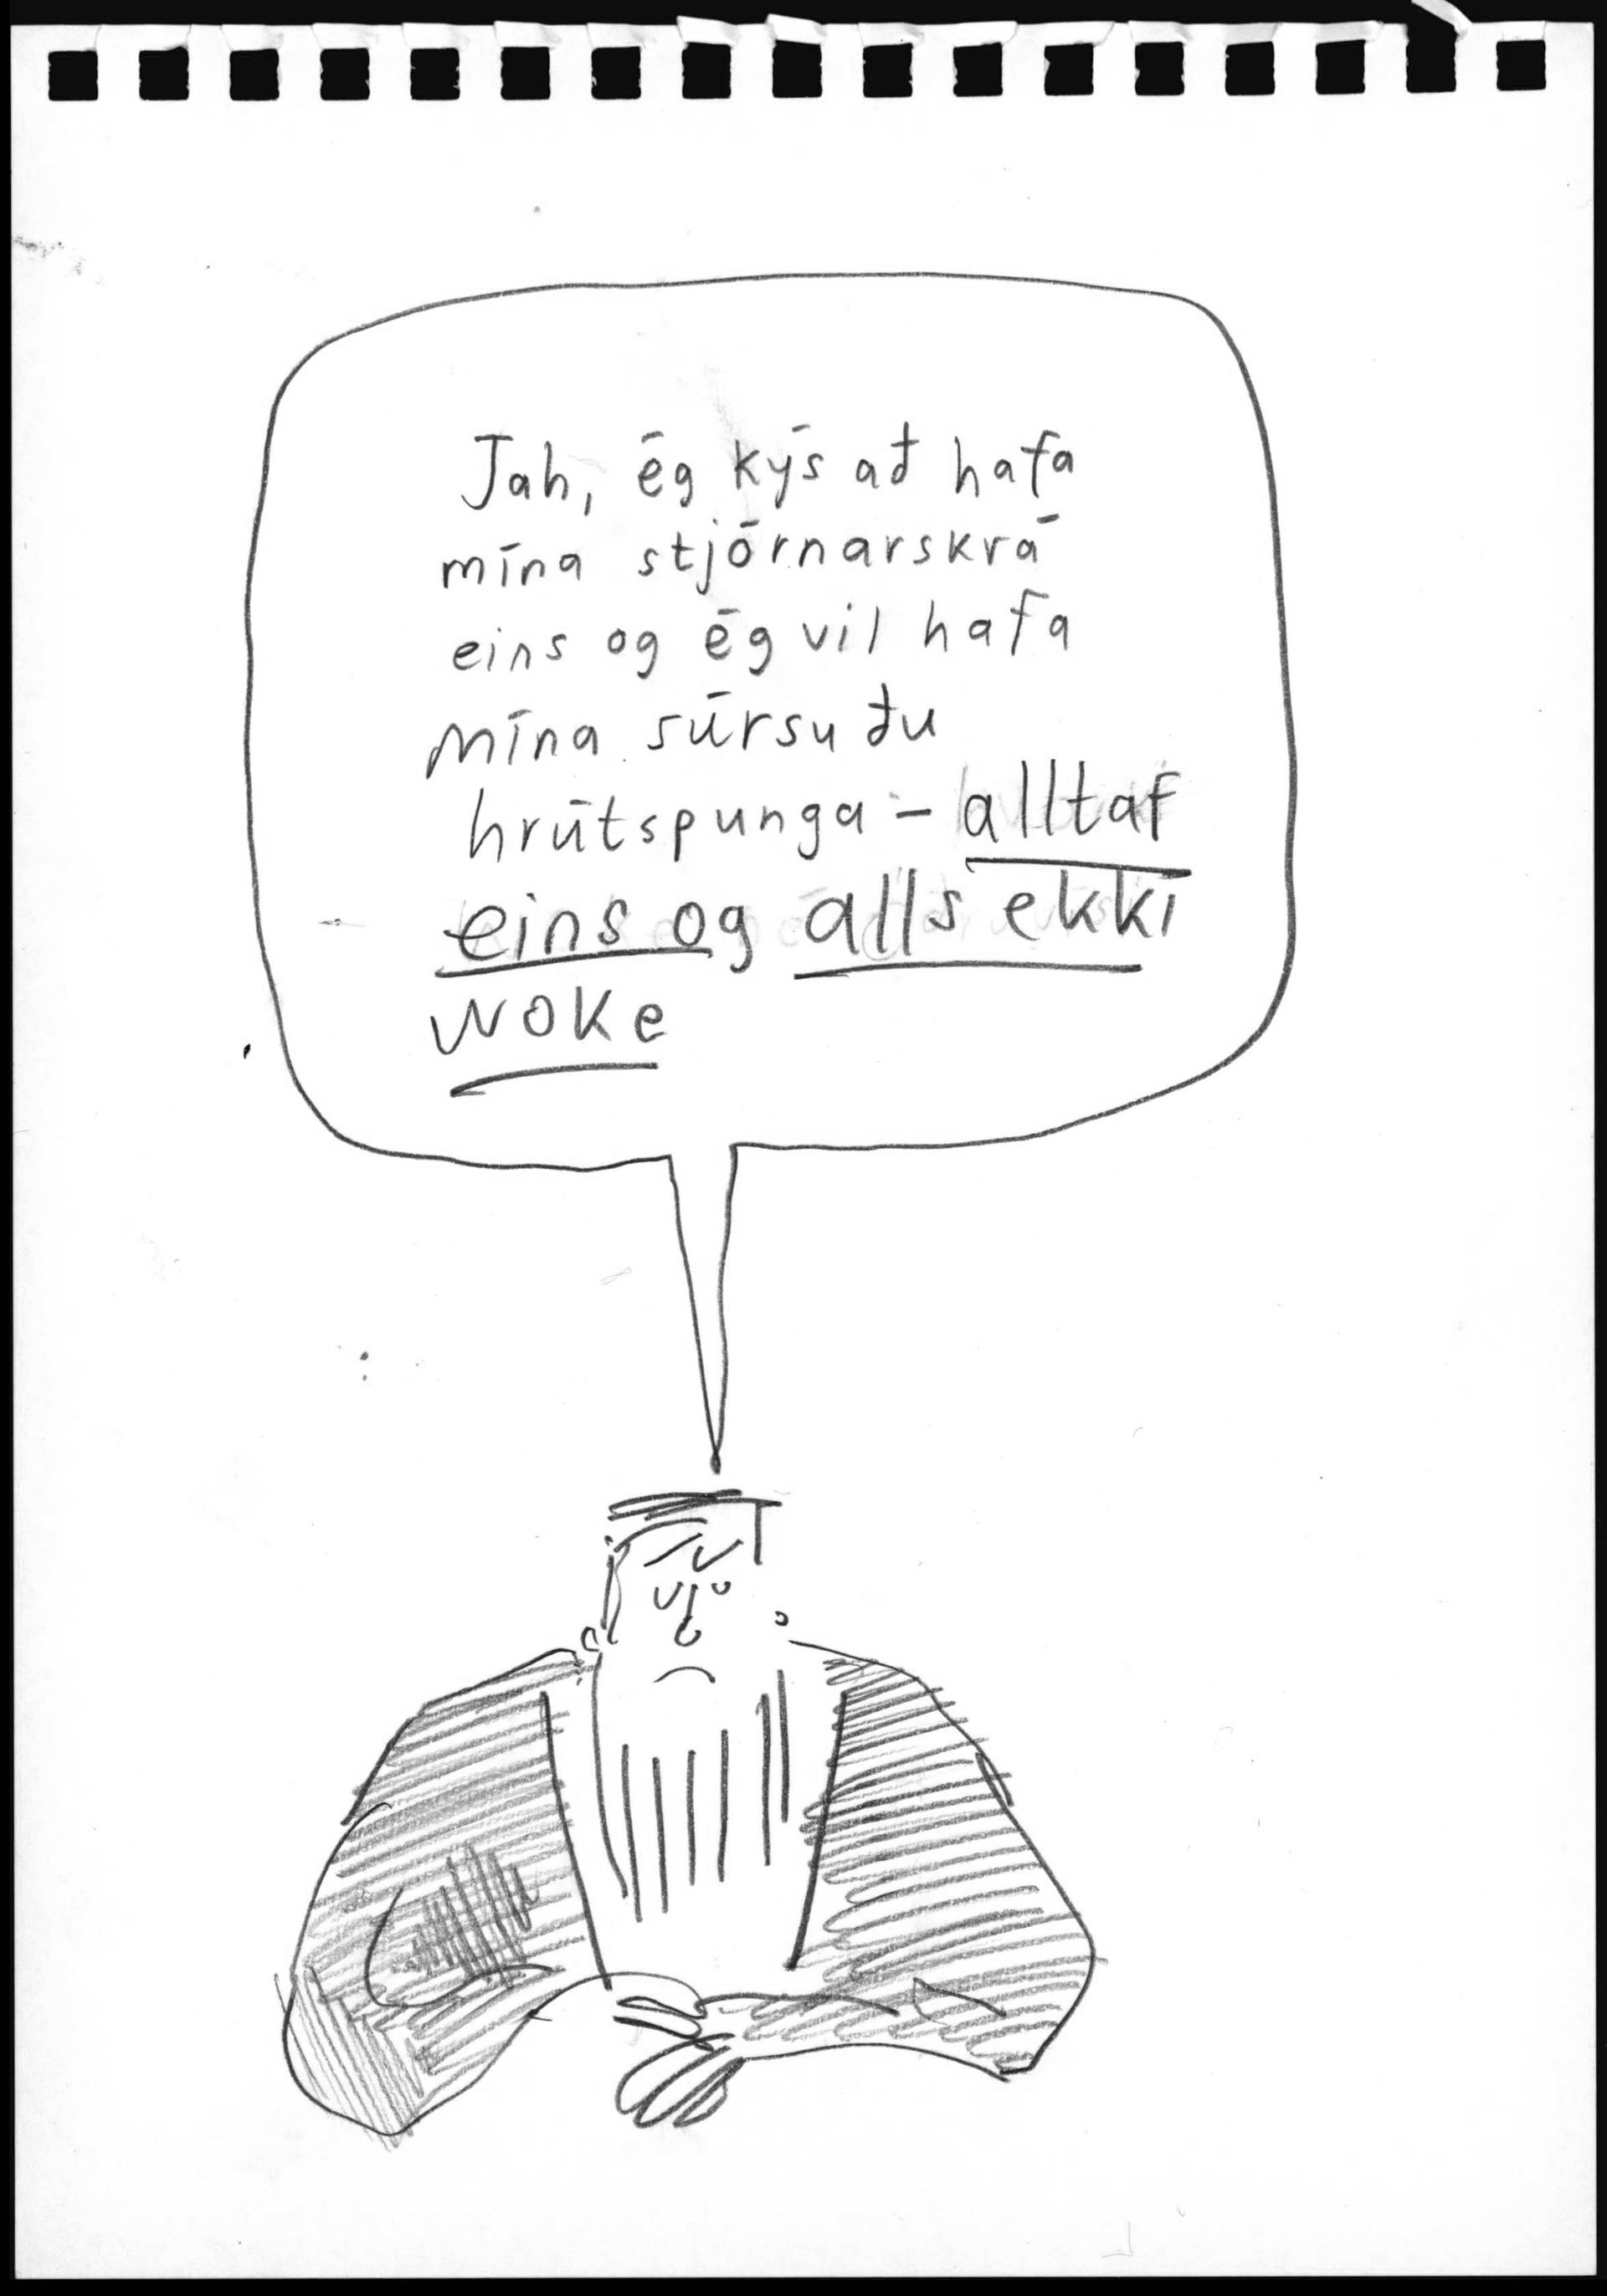 Jah, ég kýs að hafa
mína stjórnarskrá
eins og ég vil hafa
mína súrsuðu
hrútspunga – alltaf
eins og alls ekki
woke